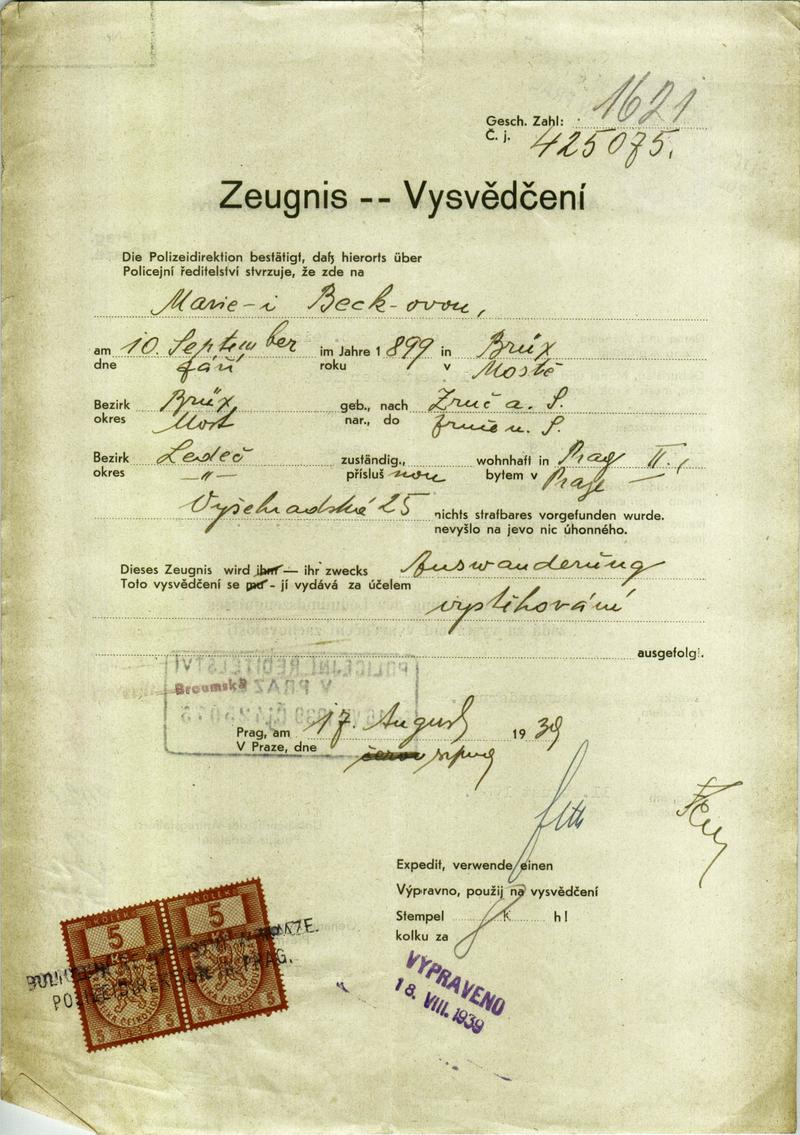 1621
Gesch. Zahl:
Č. j. 425075.
Zeugnis -- Vysvědčení
Die Polizeidirektion bestätigt, daß hierorts über
Policejní ředitelství stvrzuje, že zde na
Marie-i Beck-ovou,
am 10. September im Jahre 1899 in Brüx
dne září roku v Mostě
Bezirk Brüx geb., nach Zruč a. S.
okres Most nar., do Zruče n. S.
Bezirk Ledeč zuständig., wohnhaft in Prag II.,
okres -„- přísluš nou bytem v Praze
Vyšehradská 25 nichts strafbares vorgefunden wurde.
nevyšlo na jevo nic úhonného.
Dieses Zeugnis wird ihm — ihr zwecks Auswanderung
Toto vysvědčení se mu - jí vydává za účelem
vystěhování
ausgefolgt.
POLICEJNÍ ŘEDITELSTVÍ
V PRAZE
Broumská
Prag, am 17. August 1939
V Praze, dne srpna
Expedit, verwende einen
Výpravno, použij na vysvědčení
Stempel K h!
kolku za
KOLEK KOLEK
5 5
5 5 5 5
POLIZEIDIREKTION IN PRAG.
VYPRAVENO
18. VIII. 1939